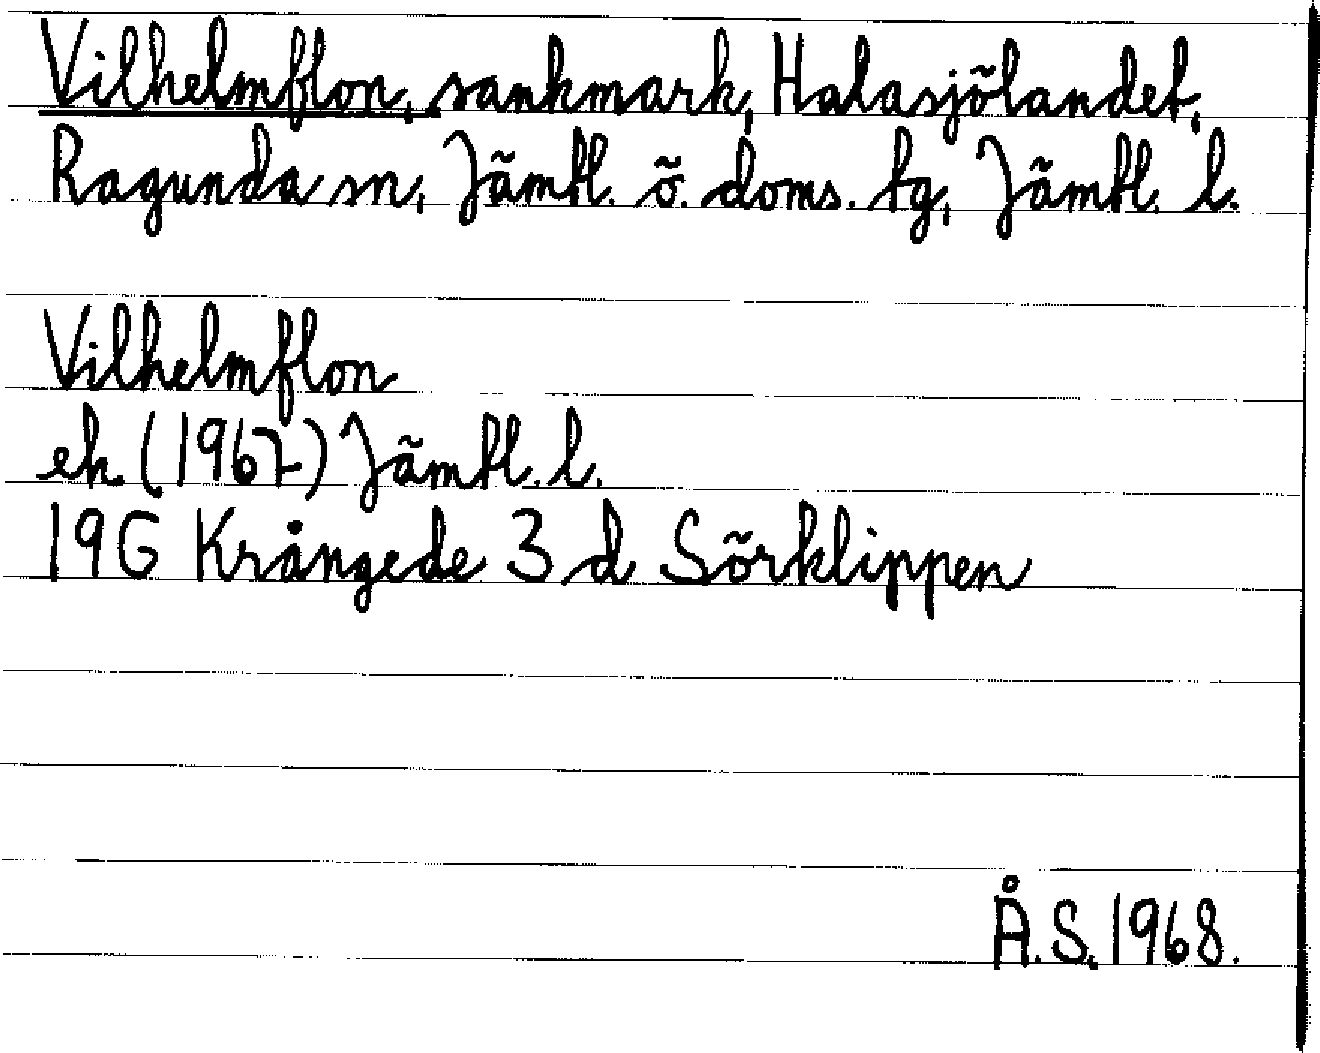 Vilhelmflon, sankmark, Halasjölandet,
Ragunda sn, Jämtl. ö. doms. tg, Jämtl. l.
Vilhelmflon
ek. (1967) Jämtl. l.
19G Krångede 3 d Sörklippen
Å.S. 1968.